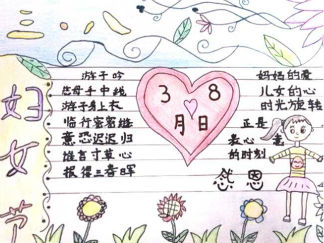 三
八
妇女节
游子吟
慈母手中线
游子身上衣
临行密密缝
意恐迟迟归
谁言寸草心
报得三春晖
3 8
月日
妈妈的爱
儿女的心
时光旋转
正是
表心意
的时刻
感恩